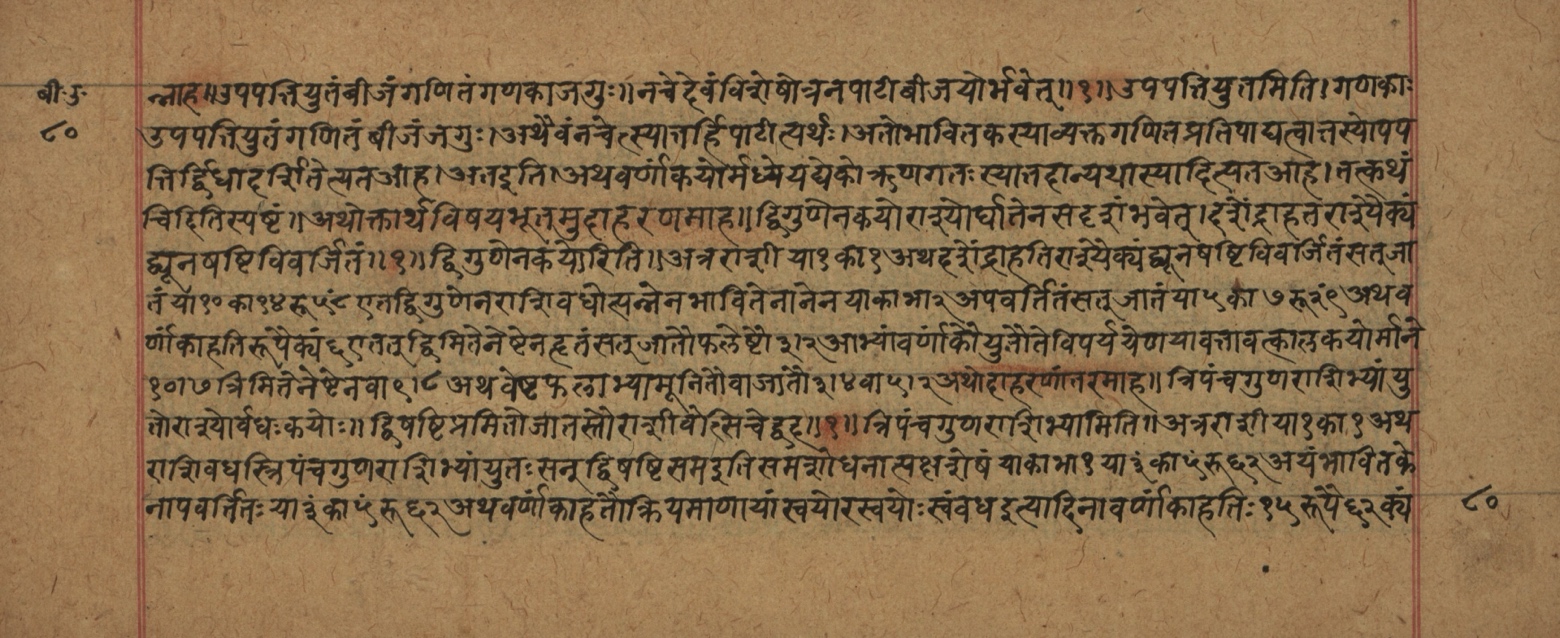 बी॰ उ॰
८०
न्नाह॥उपपत्तियुतंबीजंगणितंगणकाजगुः॥नचेदेवंविशेषोत्रनपाटीबीजयोर्भवेत्॥१॥उपपत्तियुतमिति।गणकाः
उपपत्तियुतंगणितंबीजंजगुः।अथैवंनचेत्स्यात्तर्हिपाटीत्यर्थः।अतोभावितकस्याव्यक्तगणितप्रतिपाद्यत्वात्तस्योपप
त्तिर्द्विधाहशितेत्यतआह।अतइति।अथवर्णांकयोर्मध्येयद्येकोऋणगतःस्यात्तदान्यथास्यादित्यतआह।तत्कथं
चिदितिस्पष्टं॥अथोक्तार्थविषयभूतमुदाहरणमाह॥द्विगुणेनकयोराश्योर्घातेनसदृशंभवेत्।दशेंद्राहतराश्यैक्यं
द्व्यूनषष्टिविवर्जितं॥१॥द्विगुणेनकयोरिति॥अत्रराशीया१का१अथदशेंद्राहतिराश्यैक्यंद्व्यूनषष्टिविवर्जितंसतुजा
तंया१०का१४रू५८ंएतद्विगुणेनराशिवधोत्पन्नेनभावितेनानेनयाकाभा२अपवर्तितंसतुजातंया५का७रू२९ंअथव
र्णांकाहतिरूपैक्यं६एतत्तुद्विमितेनेष्टेनहृतंसतुजातौफलेष्टौ३।२आभ्यांवर्णांकौयुतौतेविपर्ययेणयावत्तावत्कालकयोर्माने
१०।७त्रिमितेनेष्टेनवा९।८अथवेष्टफलाभ्यामूनितौवाज्यंतौ३।४वा५।२अथोदाहरणांतरमाह॥त्रिपंचगुणराशिभ्यांयु
तोराश्योर्वधःकयोः॥द्विषष्टिप्रमितोजातस्तौराशीवेत्सिचेद्वद॥१॥त्रिपंचगुणराशिभ्यामिति॥अत्रराशीया१का१अथ
राशिवधस्त्रिपंचगुणराशिभ्यांयुतःसन्द्विषष्टिसमइतिसमशोधनात्पक्षशेषंयाकाभा१या३ंका५ंरू६२अयंभावितके
नापवर्तितःया३ंका५ंरू६२अथवर्णांकाहतौक्रियमाणायांस्वयोरस्वयोःस्वंवधइत्यादिनावर्णांकाहतिः१५रूपै६२क्यं
८०